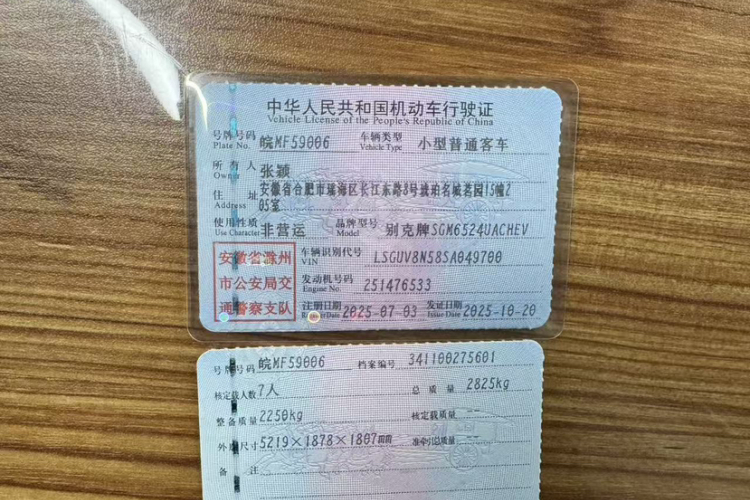 中华人民共和国机动车行驶证
Vehicle License of the People's Republic of China
号牌号码 皖MF59006 车辆类型 小型普通客车
Plate No. Vehicle Type
所有人 张颖
Owner
住址 安徽省合肥市瑶海区长江东路8号琥珀名城茗园15幢2
Address 05室
使用性质 非营运 品牌型号 别克牌SGM6524UACHEV
Use Character Model
安徽省滁州
市公安局交
通警察支队
车辆识别代号 LSGUV8N58SA049700
VIN
发动机号码 251476533
Engine No.
注册日期 2025-07-03 发证日期 2025-10-20
Register Date Issue Date
号牌号码 皖MF59006 档案编号 341100275601
核定载人数 7人 总质量 2825kg
整备质量 2250kg 核定载质量 --
外廓尺寸 5219×1878×1807mm 准牵引总质量 --
备注